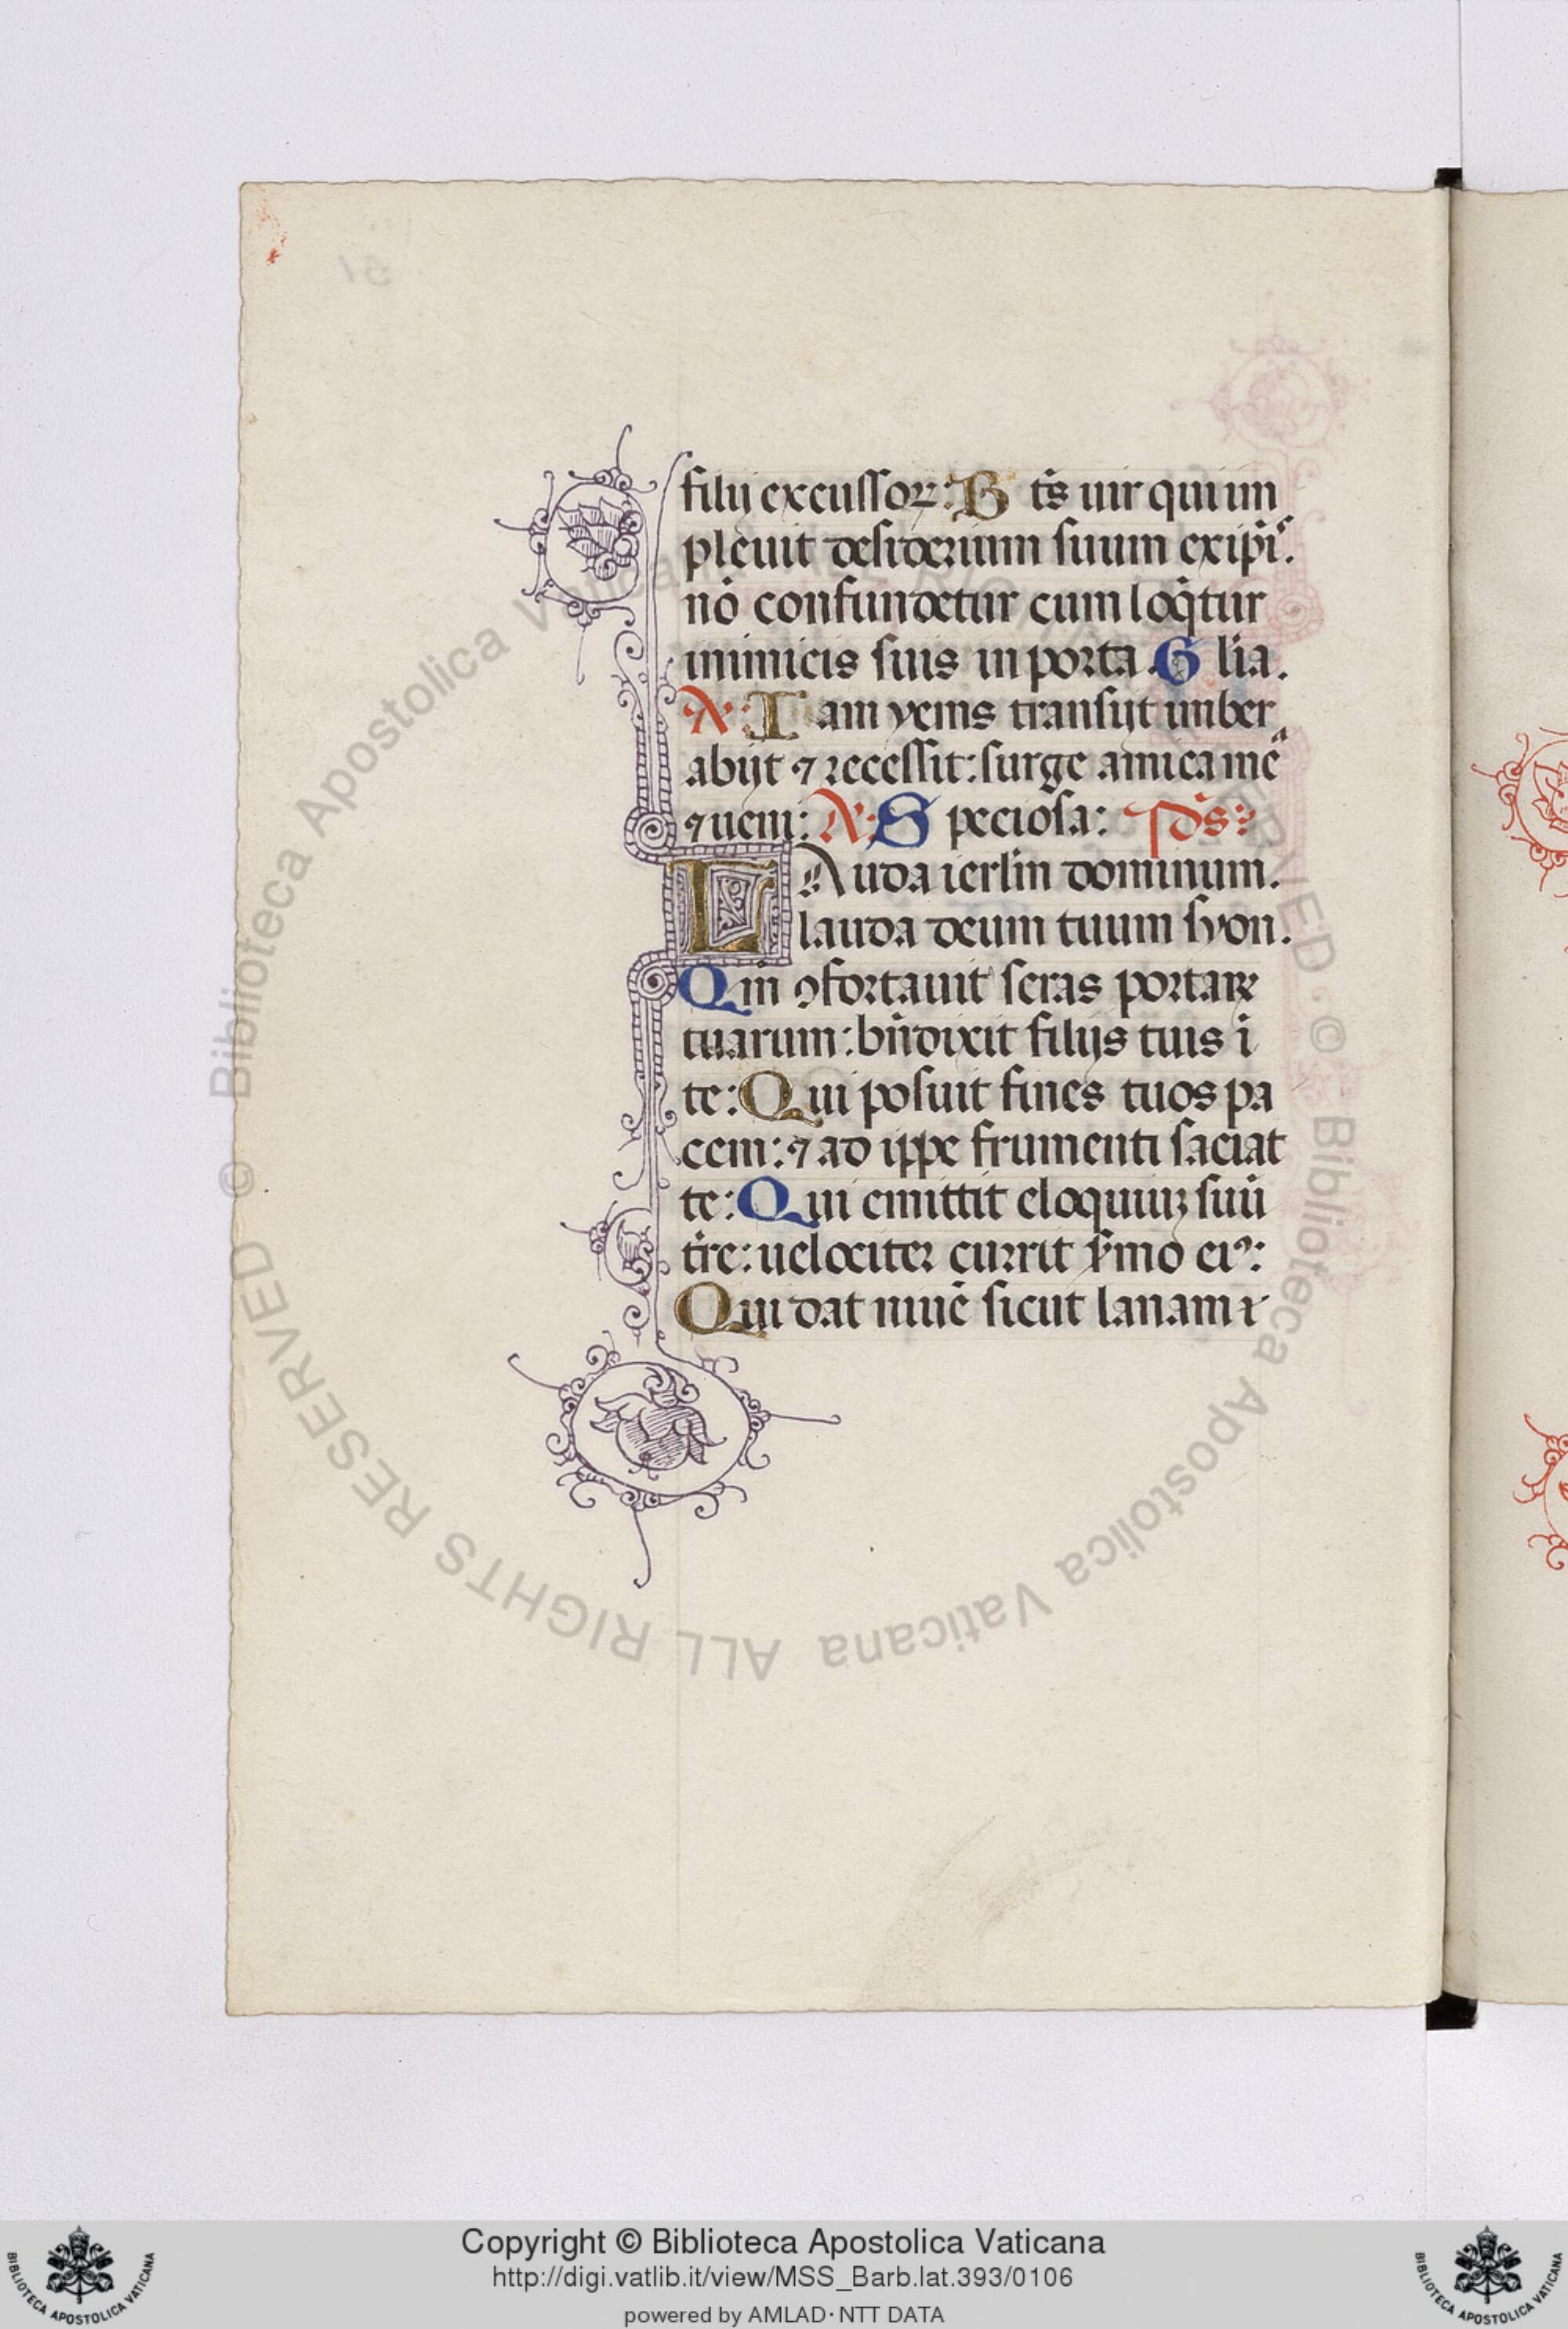 filij excussoꝝ: B ts̄ uir qui im
pleuit desiderium suum ex ip̄is.
nō confundetur cum loq̄tur
inimicis suis in porta. G lia.
A: I am yems transijt imber
abijt ⁊ recessit: surge amica mea
⁊ ueni: A: S peciosa: ps̄:
LAuda ierl̄m dominum.
lauda deum tuum syon.
Qm̄ ꝯfortauit seras portaꝝ
tuarum: bn̄dixit filijs tuis ī
te: Qui posuit fines tuos pa
cem: ⁊ adippe frumenti saciat
te: Qui emittit eloquiuꝫ suū
tr̄e: uelociter currit s̄mo eiꝰ:
Qui dat niuē sicut lanam:
© Biblioteca Apostolica Vaticana ALL RIGHTS RESERVED
Copyright © Biblioteca Apostolica Vaticana
http://digi.vatlib.it/view/MSS_Barb.lat.393/0106
powered by AMLAD·NTT DATA
BIBLIOTECA APOSTOLICA VATICANA
BIBLIOTECA APOSTOLICA VATICANA